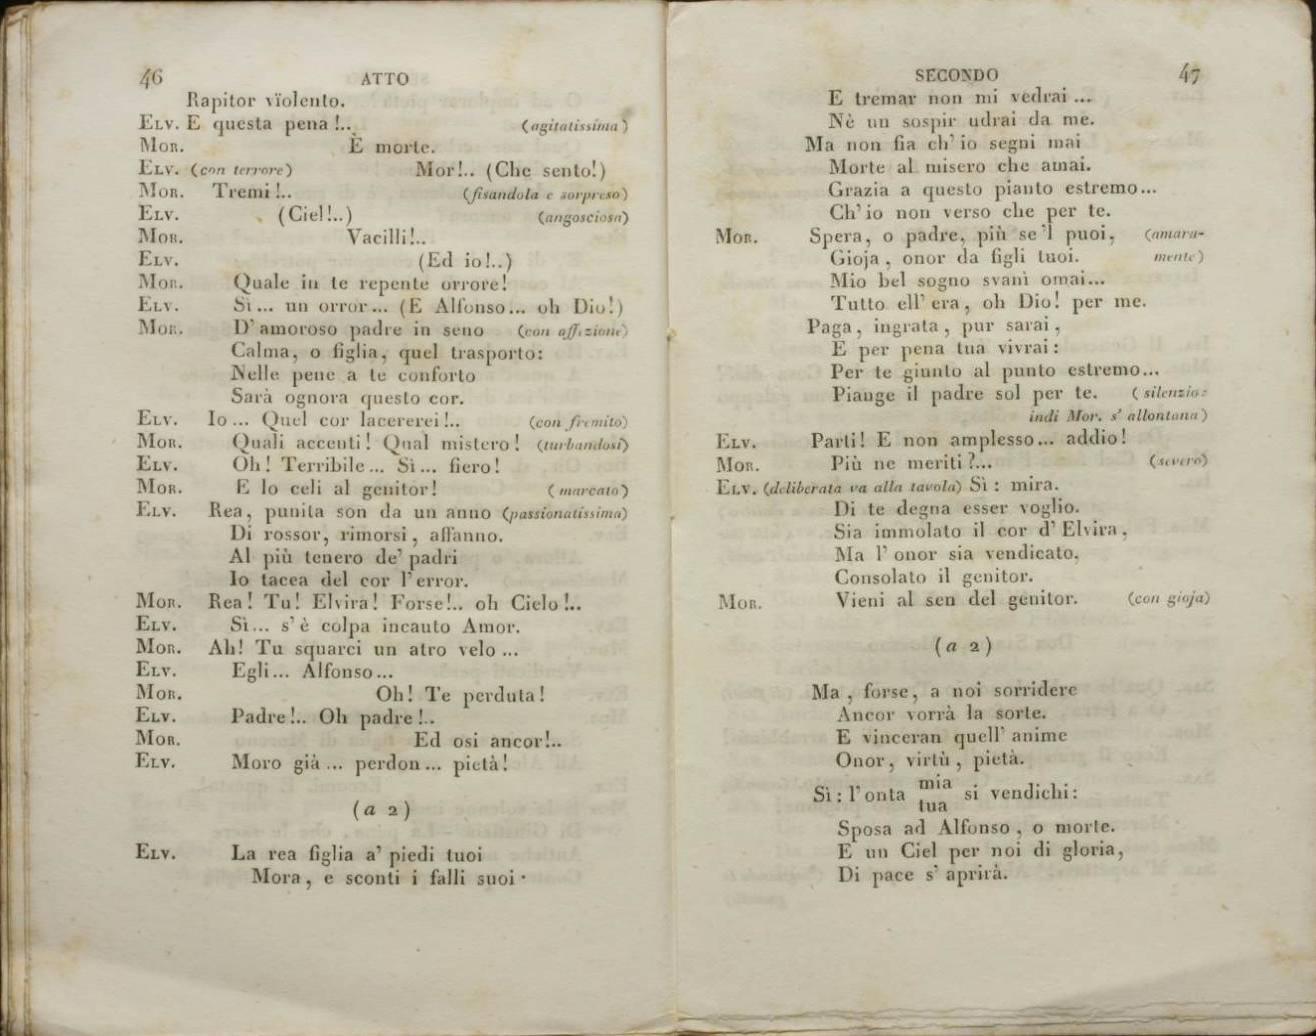 46 ATTO
Rapitor vïolento.
ELV. E questa pena!... (agitatissima)
MOR. È morte.
ELV. (con terrore) Mor!.. (Che sento!)
MOR. Tremi!.. (fisandola e sorpreso)
ELV. (Ciel!..) (angosciosa)
MOR. Vacilli!..
ELV. (Ed io!..)
MOR. Quale in te repente orrore!
ELV. Sì... un orror... (E Alfonso... oh Dio!)
MOR. D'amoroso padre in seno (con affezione)
Calma, o figlia, quel trasporto:
Nelle pene a te conforto
Sarà ognora questo cor.
ELV. Io... Quel cor lacererei!.. (con fremito)
MOR. Quali accenti! Qual mistero! (turbandosi)
ELV. Oh! Terribile... Sì... fiero!
MOR. E lo celi al genitor! (marcato)
ELV. Rea, punita son da un anno (passionatissima)
Di rossor, rimorsi, affanno.
Al più tenero de' padri
Io tacea del cor l'error.
MOR. Rea! Tu! Elvira! Forse!.. oh Cielo!..
ELV. Sì... s'è colpa incauto Amor.
MOR. Ah! Tu squarci un atro velo...
ELV. Egli... Alfonso...
MOR. Oh! Te perduta!
ELV. Padre!.. Oh padre!..
MOR. Ed osi ancor!..
ELV. Moro già... perdon... pietà!
(a 2)
ELV. La rea figlia a' piedi tuoi
Mora, e sconti i falli suoi.
SECONDO 47
E tremar non mi vedrai...
Nè un sospir udrai da me.
Ma non fia ch'io segni mai
Morte al misero che amai.
Grazia a questo pianto estremo...
Ch'io non verso che per te.
MOR. Spera, o padre, più se'l puoi, (amara-
Gioja, onor da figli tuoi. mente)
Mio bel sogno svanì omai...
Tutto ell'era, oh Dio! per me.
Paga, ingrata, pur sarai,
E per pena tua vivrai:
Per te giunto al punto estremo...
Piange il padre sol per te. (silenzio:
indi Mor. s'allontana)
ELV. Parti! E non amplesso... addio!
MOR. Più ne meriti?... (severo)
ELV. (deliberata va alla tavola) Sì: mira.
Di te degna esser voglio.
Sia immolato il cor d'Elvira,
Ma l'onor sia vendicato,
Consolato il genitor.
MOR. Vieni al sen del genitor. (con gioja)
(a 2)
Ma, forse, a noi sorridere
Ancor vorrà la sorte.
E vinceran quell'anime
Onor, virtù, pietà.
Sì: l'onta mia si vendichi:
tua
Sposa ad Alfonso, o morte.
E un Ciel per noi di gloria,
Di pace s'aprirà.